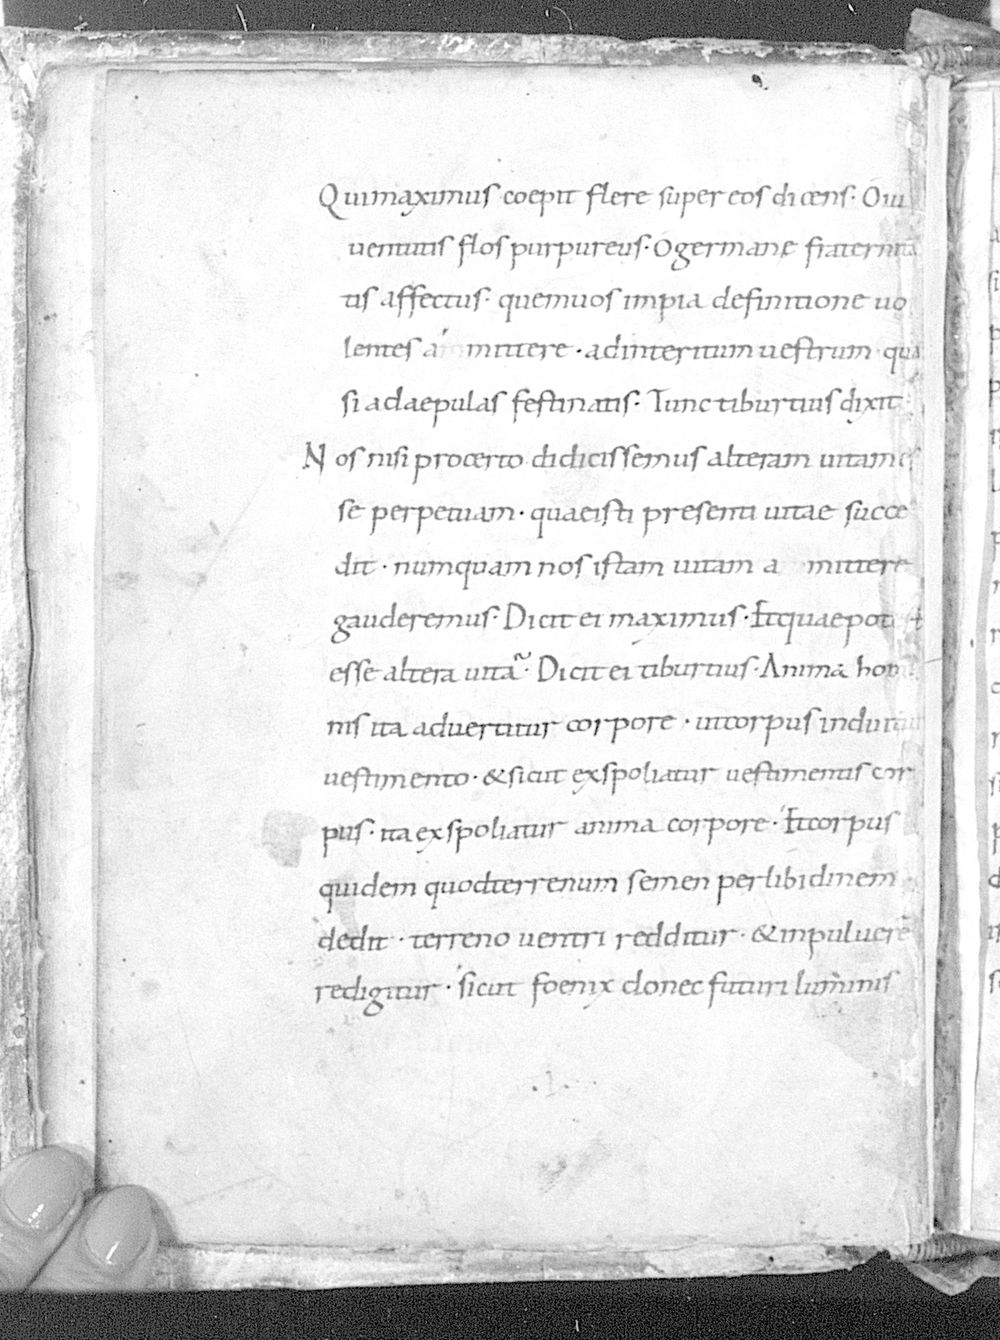 Qui maximus coepit flere super eos dicens· O iu
uentutis flos purpureus· O germane fraternita
tis affectus· quem uos impia definitione uo
lentes a mittere · ad interitum uestrum qua
si ad aepulas festinatis· Tunc tiburtius dixit·
Nos nisi pro certo didicissemus alteram uitam es
se perpetuam· quae isti presenti uitae succe
dit · numquam nos istam uitam a mittere
gauderemus· Dicit ei maximus· Et quae pot
esse altera uita· Dicit ei tiburtius· Anima homi
nis ita aduertitur corpore · ut corpus induitur
uestimento· & sicut exspoliatur uestimentis cor
pus· ita exspoliatur anima corpore· Et corpus
quidem quod terrenum semen per libidinem
dedit · terreno uentri redditur· & in puluere
redigitur · sicut foenix donec futuri luminis
· I ·